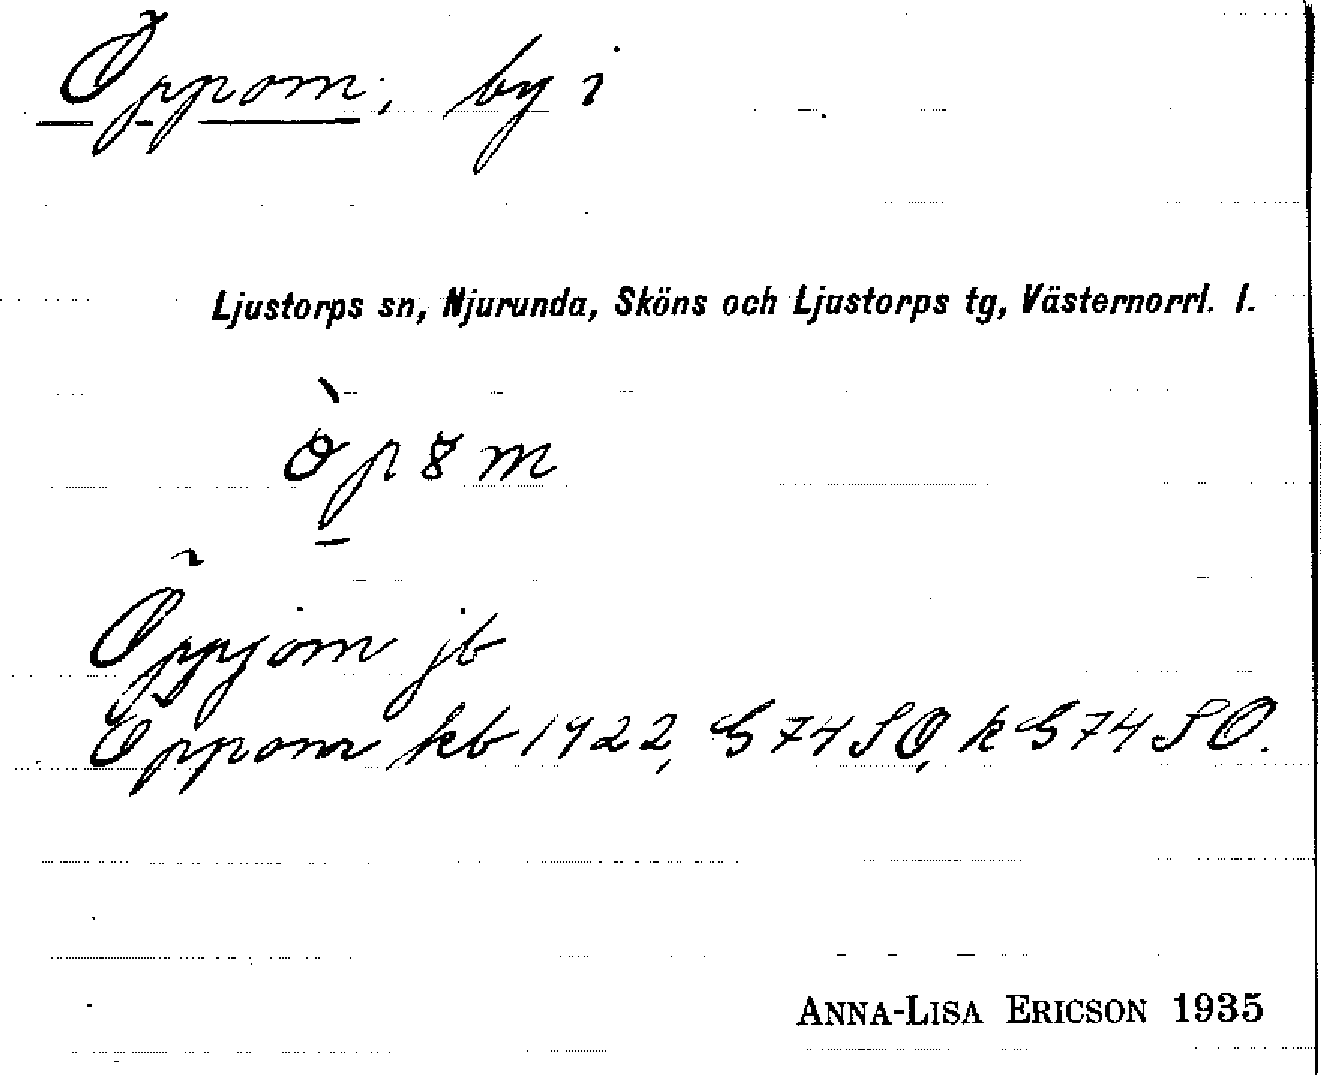 Öppom, by i
Ljustorps sn, Njurunda, Sköns och Ljustorps tg, Västernorrl. l.
Öppjom jb
Öppom kb 1922, G 74 SO, k G 74 SO.
ANNA-LISA ERICSON 1935